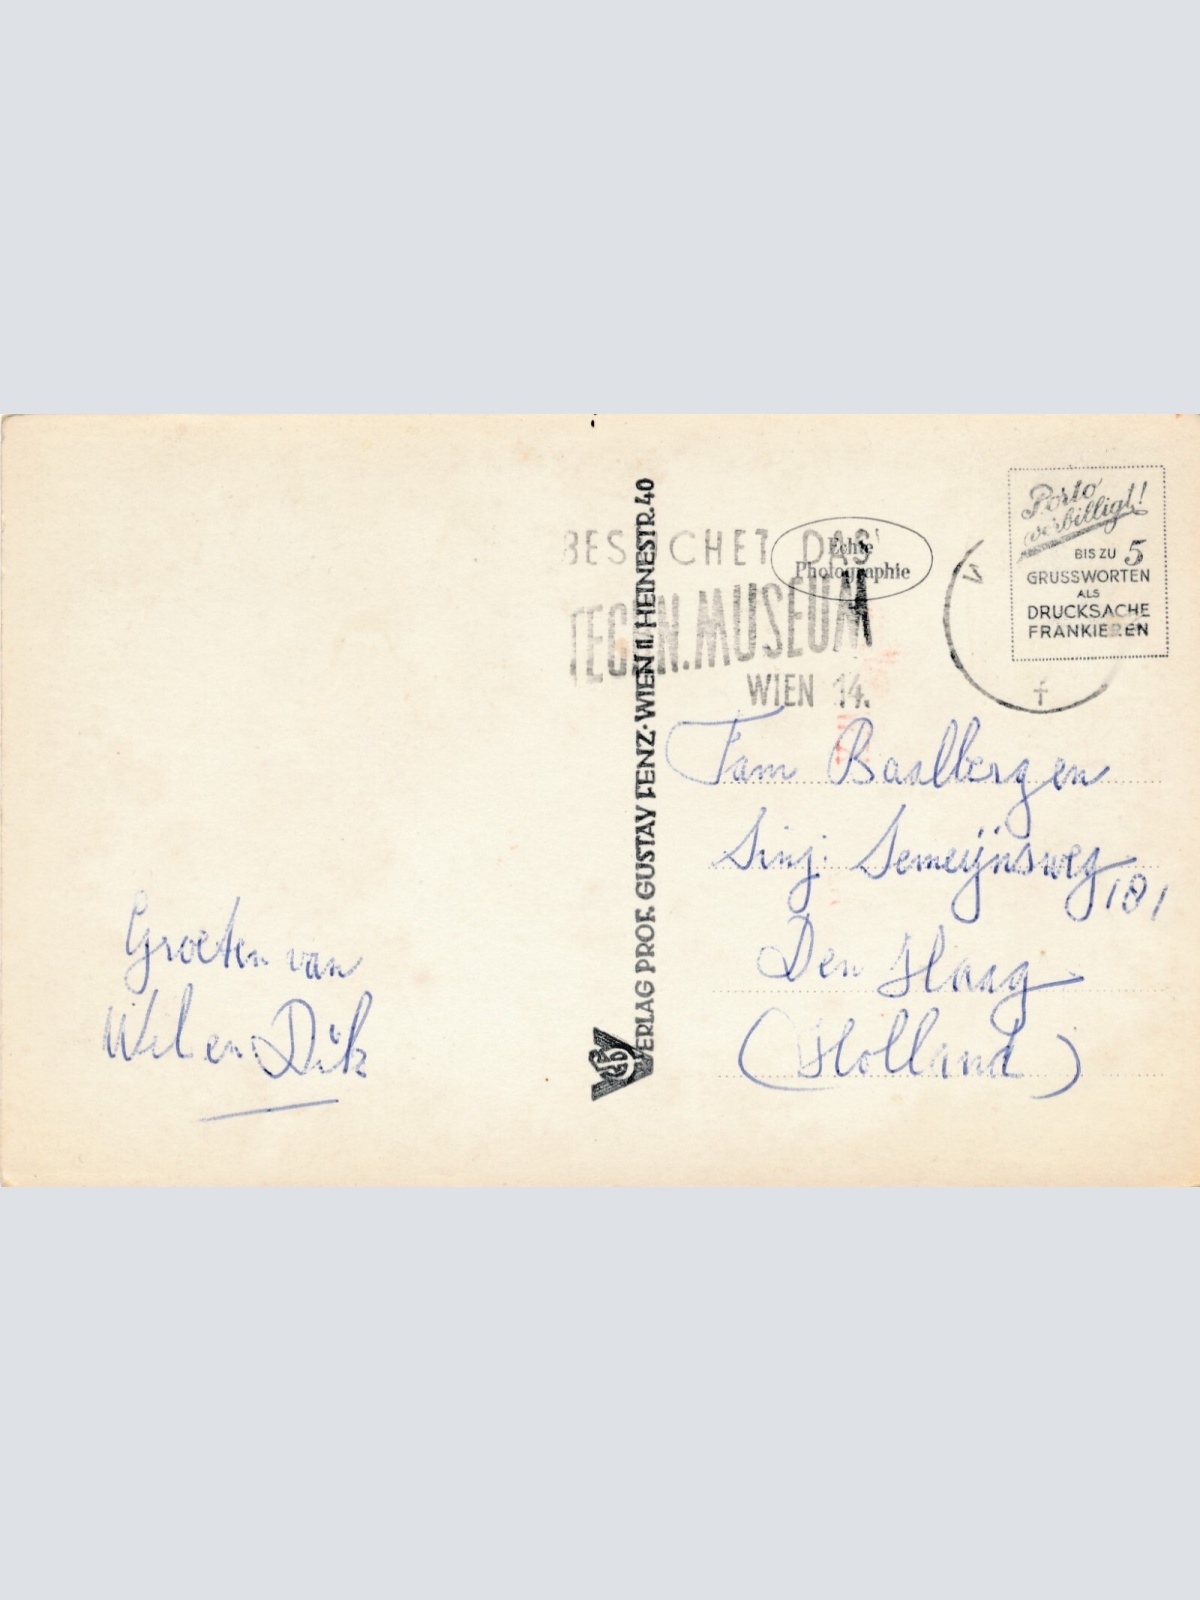 Groeten van
Wil en Dik
VERLAG PROF. GUSTAV LENZ · WIEN II/HEINESTR. 40
BESUCHET DAS
TECHN. MUSEUM
WIEN 14.
Echte
Photographie
Porto
verbilligt!
BIS ZU 5
GRUSSWORTEN
ALS
DRUCKSACHE
FRANKIEREN
Fam Baalbergen
Sing. Semeijnsweg 181
Den Haag
(Holland)